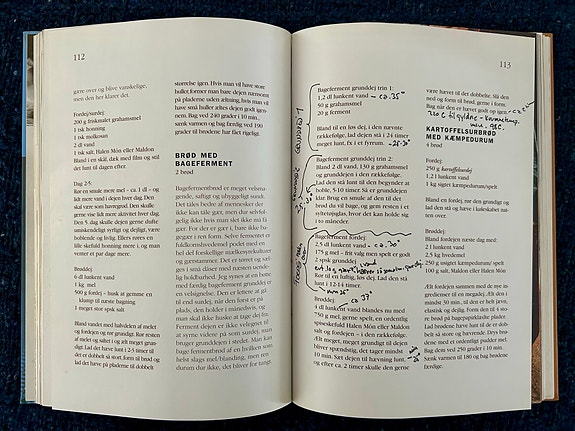 112
gære over og blive vanskelige,
men den her klarer det.
Fordej/surdej:
200 g friskmalet grahamsmel
1 tsk honning
1 tsk molkosan
2 dl vand
1 tsk salt, Halen Môn eller Maldon
Bland i en skål, dæk med film og stil
det lunt til dagen efter.
Dag 2-5:
Rør en smule mere mel – ca. 1 dl – og
lidt mere vand i dejen hver dag. Den
skal være som havregrød. Den skulle
gerne vise lidt mere aktivitet hver dag.
Den 5. dag skulle dejen gerne dufte
umiskendeligt syrligt og dejligt, være
boblende og livlig. Ellers røres en
lille skefuld honning mere i, og man
venter et par dage mere.
Brøddej:
6 dl lunkent vand
1 kg mel
500 g fordej – husk at gemme en
klump til næste bagning
1 meget stor spsk salt
Bland vandet med halvdelen af melet
og fordejen og rør grundigt. Rør resten
af melet og saltet i og ælt meget grun-
digt. Lad det hæve lunt i 2-3 timer til
det er dobbelt så stort, form til brød og
lad det hæve på pladerne til dobbelt
størrelse igen. Hvis man vil have store
huller, former man bare dejen nænsomt
på pladerne uden æltning, hvis man vil
have små huller æltes dejen godt igen-
nem. Bag ved 240 grader i 10 min.,
sænk varmen og bag færdig ved 190
grader til brødene har fået rigeligt.
BRØD MED
BAGEFERMENT
2 brød
Bagefermentbrød er meget velsma-
gende, saftige og uhyggeligt sunde.
Det tales bedre af mennesker der
ikke kan tåle gær, men dur selvføl-
gelig ikke hvis man ikke må få glu-
ten. For der er gær i, bare ikke ba-
gegær i ren form. Selve fermentet er
fuldkornshvedemel podet med en
hel del forskellige mælkesyrekulturer
og gærstammer. Det er tørret og sæl-
ges i små dåser med næsten uende-
lig holdbarhed. Jeg synes at en bøtte
med færdig bageferment grunddej er
en velsignelse. Den er lettere at gå
til end surdej, når den først er på
plads, den holder i månedsvis, og
man skal ikke huske at tage dej fra.
Ferment dejen er ikke velegnet til
at syrne videre på som surdej, man
bruger grunddejen i stedet. Man kan
bage fermentbrød af en hvilken som
helst slags mel/blanding, men ren
durum dur ikke, det bliver for tungt.
113
Bageferment grunddej trin 1:
1,2 dl lunkent vand – ca. 35°
50 g grahamsmel
20 g ferment
Bland til en løs dej, i den nævnte
rækkefølge. Lad dejen stå i 24 timer
meget lunt, fx i et fyrrum.
Bageferment grunddej trin 2:
Bland 2 dl vand, 130 g grahamsmel
og grunddejen – i den rækkefølge.
Lad den stå lunt til den begynder at
boble, 5-10 timer. Så er grunddejen
klar. Brug en smule af den til det
brød du vil bage, og gem resten i et
syltetøjsglas, hvor det kan holde sig
i to måneder.
Bageferment fordej
2,5 dl lunkent vand – ca. 30°
175 g mel – frit valg men spelt er godt
2 spsk grunddej
Rør til en luftig, løs dej. Lad den stå
lunt i 12-14 timer.
Brøddej: ca 37°
4 dl lunkent vand blandes nu med
750 g mel, gerne spelt, en ordentlig
spsk salt, Halen Môn eller Maldon
og fordejen – i den rækkefølge.
Ælt meget, meget grundigt til dejen
bliver spændstig, det tager mindst
10 min. Sæt dejen til hævning lunt,
og efter ca. 2 timer skulle den gerne
være hævet til det dobbelte. Slå den
ned og form til brød, gerne i form.
Bag når den er hævet godt op
KARTOFFELSURBRØD
MED KÆMPEDURUM
4 brød
Fordej:
250 g kartoffelsurdej
1,2 l lunkent vand
1 kg sigtet pæmpedurum/spelt
Bland en fordej, rør den grundigt og
lad den stå og hæve i køleskabet nat-
ten over.
Brøddej:
Bland fordejen næste dag med:
2 l lunkent vand
2,5 kg hvedemel
250 g usigtet kæmpedurum/ spelt
100 g salt, Maldon eller Halen Môn
Ælt fordejen sammen med de nye in-
gredienser til en megadej. Ælt den i
mindst 30 min., til den er helt jævn,
elastisk og dejlig. Form den til 4 sto-
re brød på bagepapirklædte plader.
Lad brødene hæve lunt til de er dob-
belt så store og hævende. Drys brø-
dene med et ordentligt pudder mel.
Bag dem ved 250 grader i 10 min.
Sænk varmen til 180 og bag brødene
færdige.